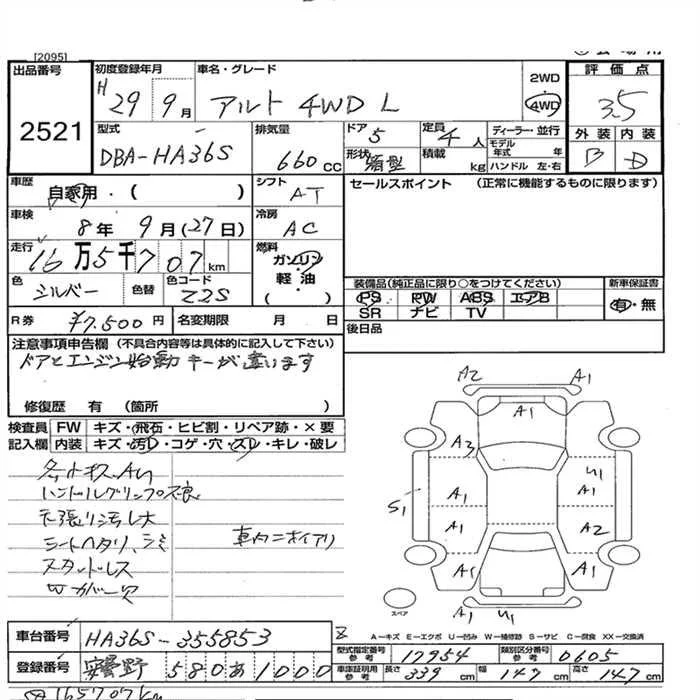 [2095]
出品番号 2521
初度登録年月 H 29 9月
車名・グレード アルト 4WD L
2WD 4WD
評価点 3.5
外装 B 内装 D
型式 DBA-HA36S
排気量 660cc
ドア 5 定員 4人
形状 箱型 積載 kg
ディーラー・並行
モデル年式 年式
ハンドル 左・右
車歴 自家用・( )
シフト AT
セールスポイント (正常に機能するものに限ります)
車検 8年9月(27日)
冷房 AC
走行 16万5千707km
燃料 ガソリン 軽油 ( )
色 シルバー 色替 色コード Z2S
装備品(純正品に限り○をつけてください)
新車保証書 有・無
PS PW ABS エアB
SR ナビ TV
R券 ¥7,500円 名変期限 月 日
後日品
注意事項申告欄 (不具合内容等は具体的に記入して下さい)
ドアとエンジン始動キーが違います
修復歴 有 (箇所
検査員記入欄
FW キズ・飛石・ヒビ割・リペア跡・×要
内装 キズ・汚レ・コゲ・穴・スレ・キレ・破レ
ハンドルグリップ不良
天張リ汚レ大
シートヘタリ、シミ
車内ニオイアリ
A2 A1
A1
A3
U1
A1 A1
S1
A1 A2
A1 A1
U1
スペア
A-キズ E-エクボ U-凹み W-補修跡 S-サビ C-腐食 XX-交換済
車台番号 HA36S-355853
型式指定番号 参考 17954
類別区分番号 参考 0605
登録番号 安曇野 580 あ 1000
車庫証明用 参考 長さ 339cm 幅 147cm 高さ 147cm
165707km